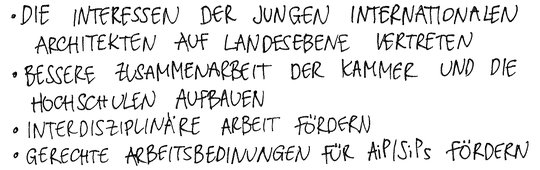 • DIE INTERESSEN DER JUNGEN INTERNATIONALEN
ARCHITEKTEN AUF LANDESEBENE VERTRETEN
• BESSERE ZUSAMMENARBEIT DER KAMMER UND DIE
HOCHSCHULEN AUFBAUEN
• INTERDISZIPLINÄRE ARBEIT FÖRDERN
• GERECHTE ARBEITSBEDINUNGEN FÜR AiP/SiPs FÖRDERN